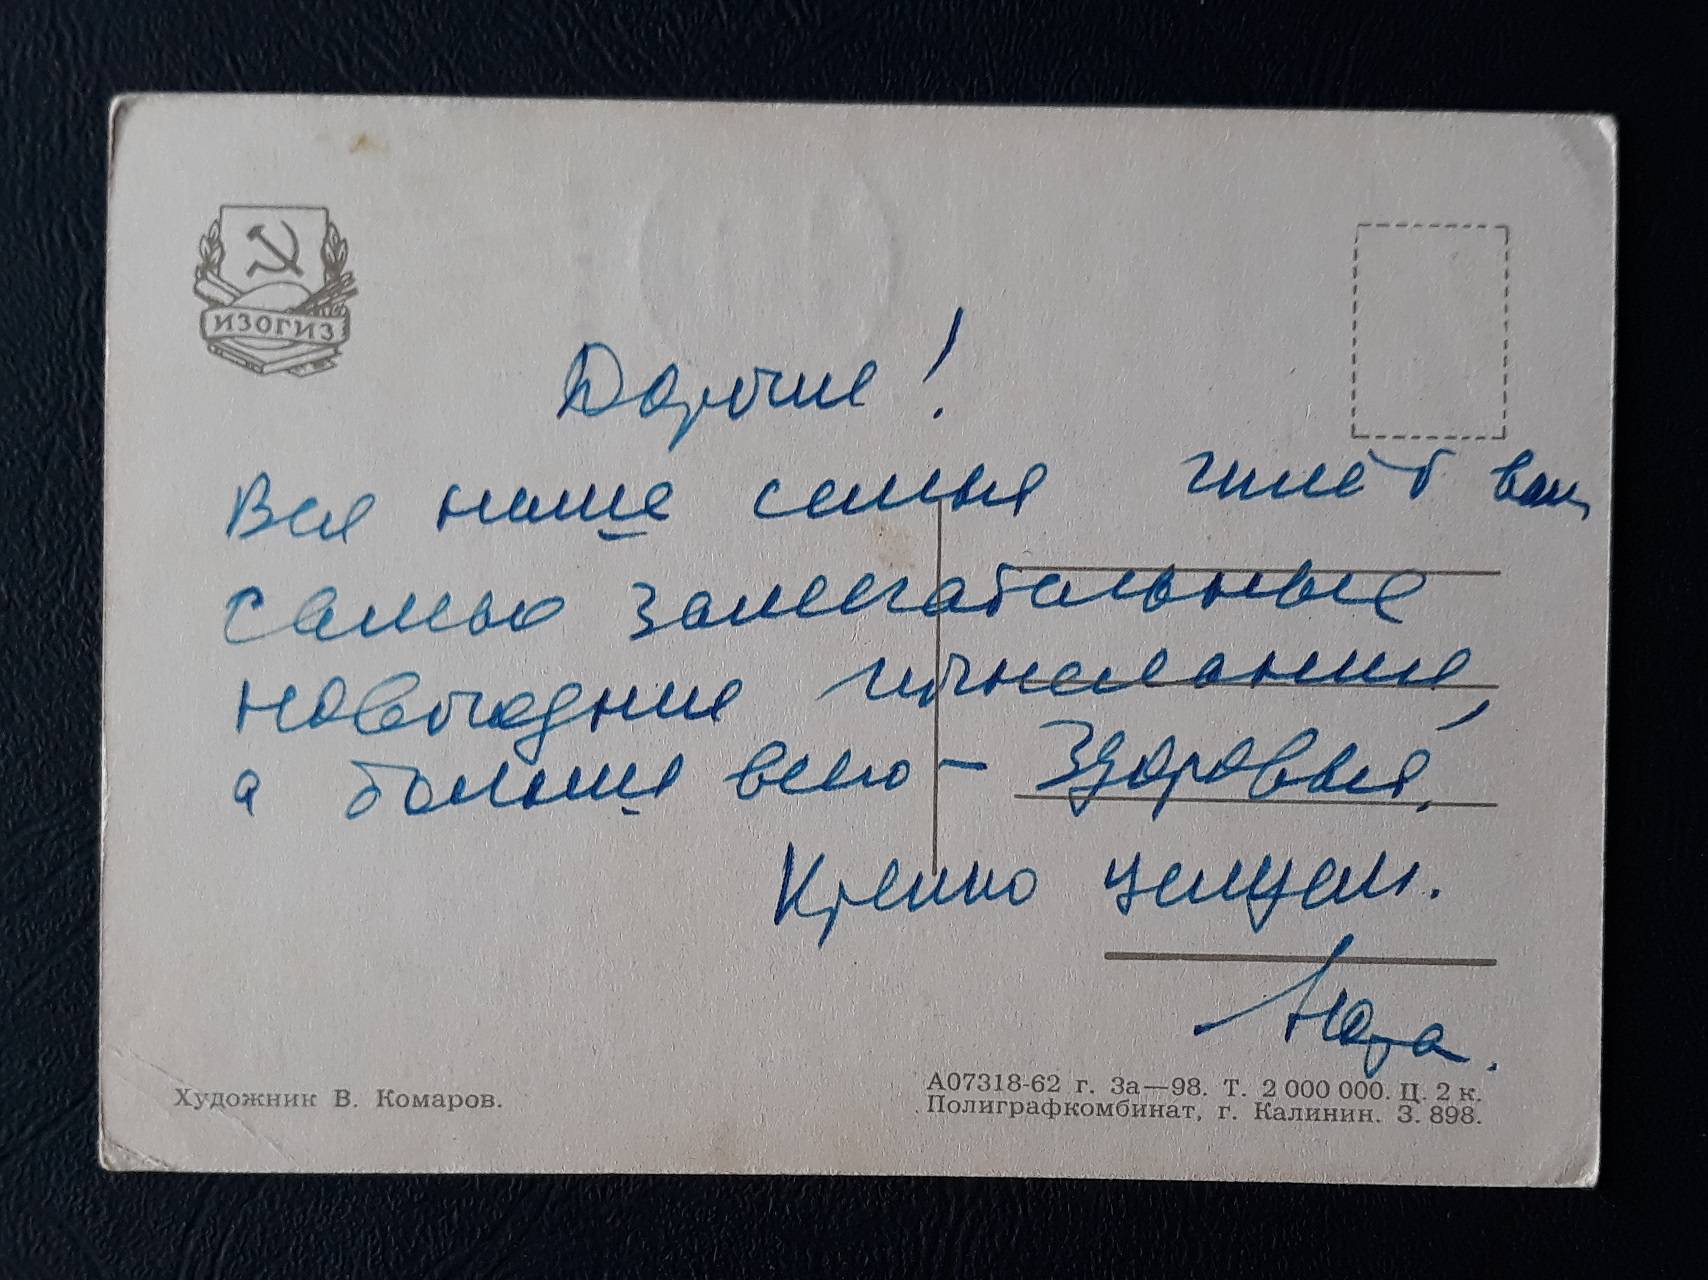 ИЗОГИЗ
Дорогие!
Вся наша семья шлёт вам
самые замечательные
новогодние пожелания,
а больше всего — Здоровья.
Крепко целуем.
Нюра.
Художник В. Комаров.
А07318-62 г. За—98. Т. 2 000 000. Ц. 2 к.
Полиграфкомбинат, г. Калинин. З. 898.